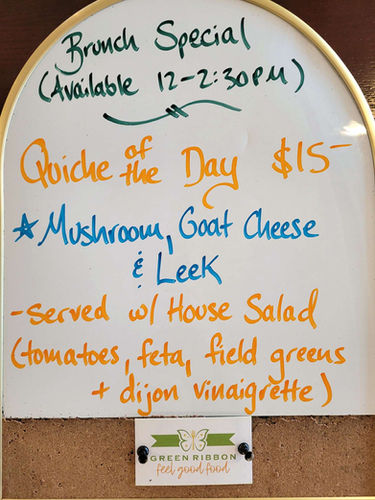 Brunch Special
(Available 12-2:30PM)
Quiche of the Day $15-
☆ Mushroom, Goat Cheese
& Leek
- Served w/ House Salad
(tomatoes, feta, field greens
+ dijon vinaigrette)
GREEN RIBBON
feel good food